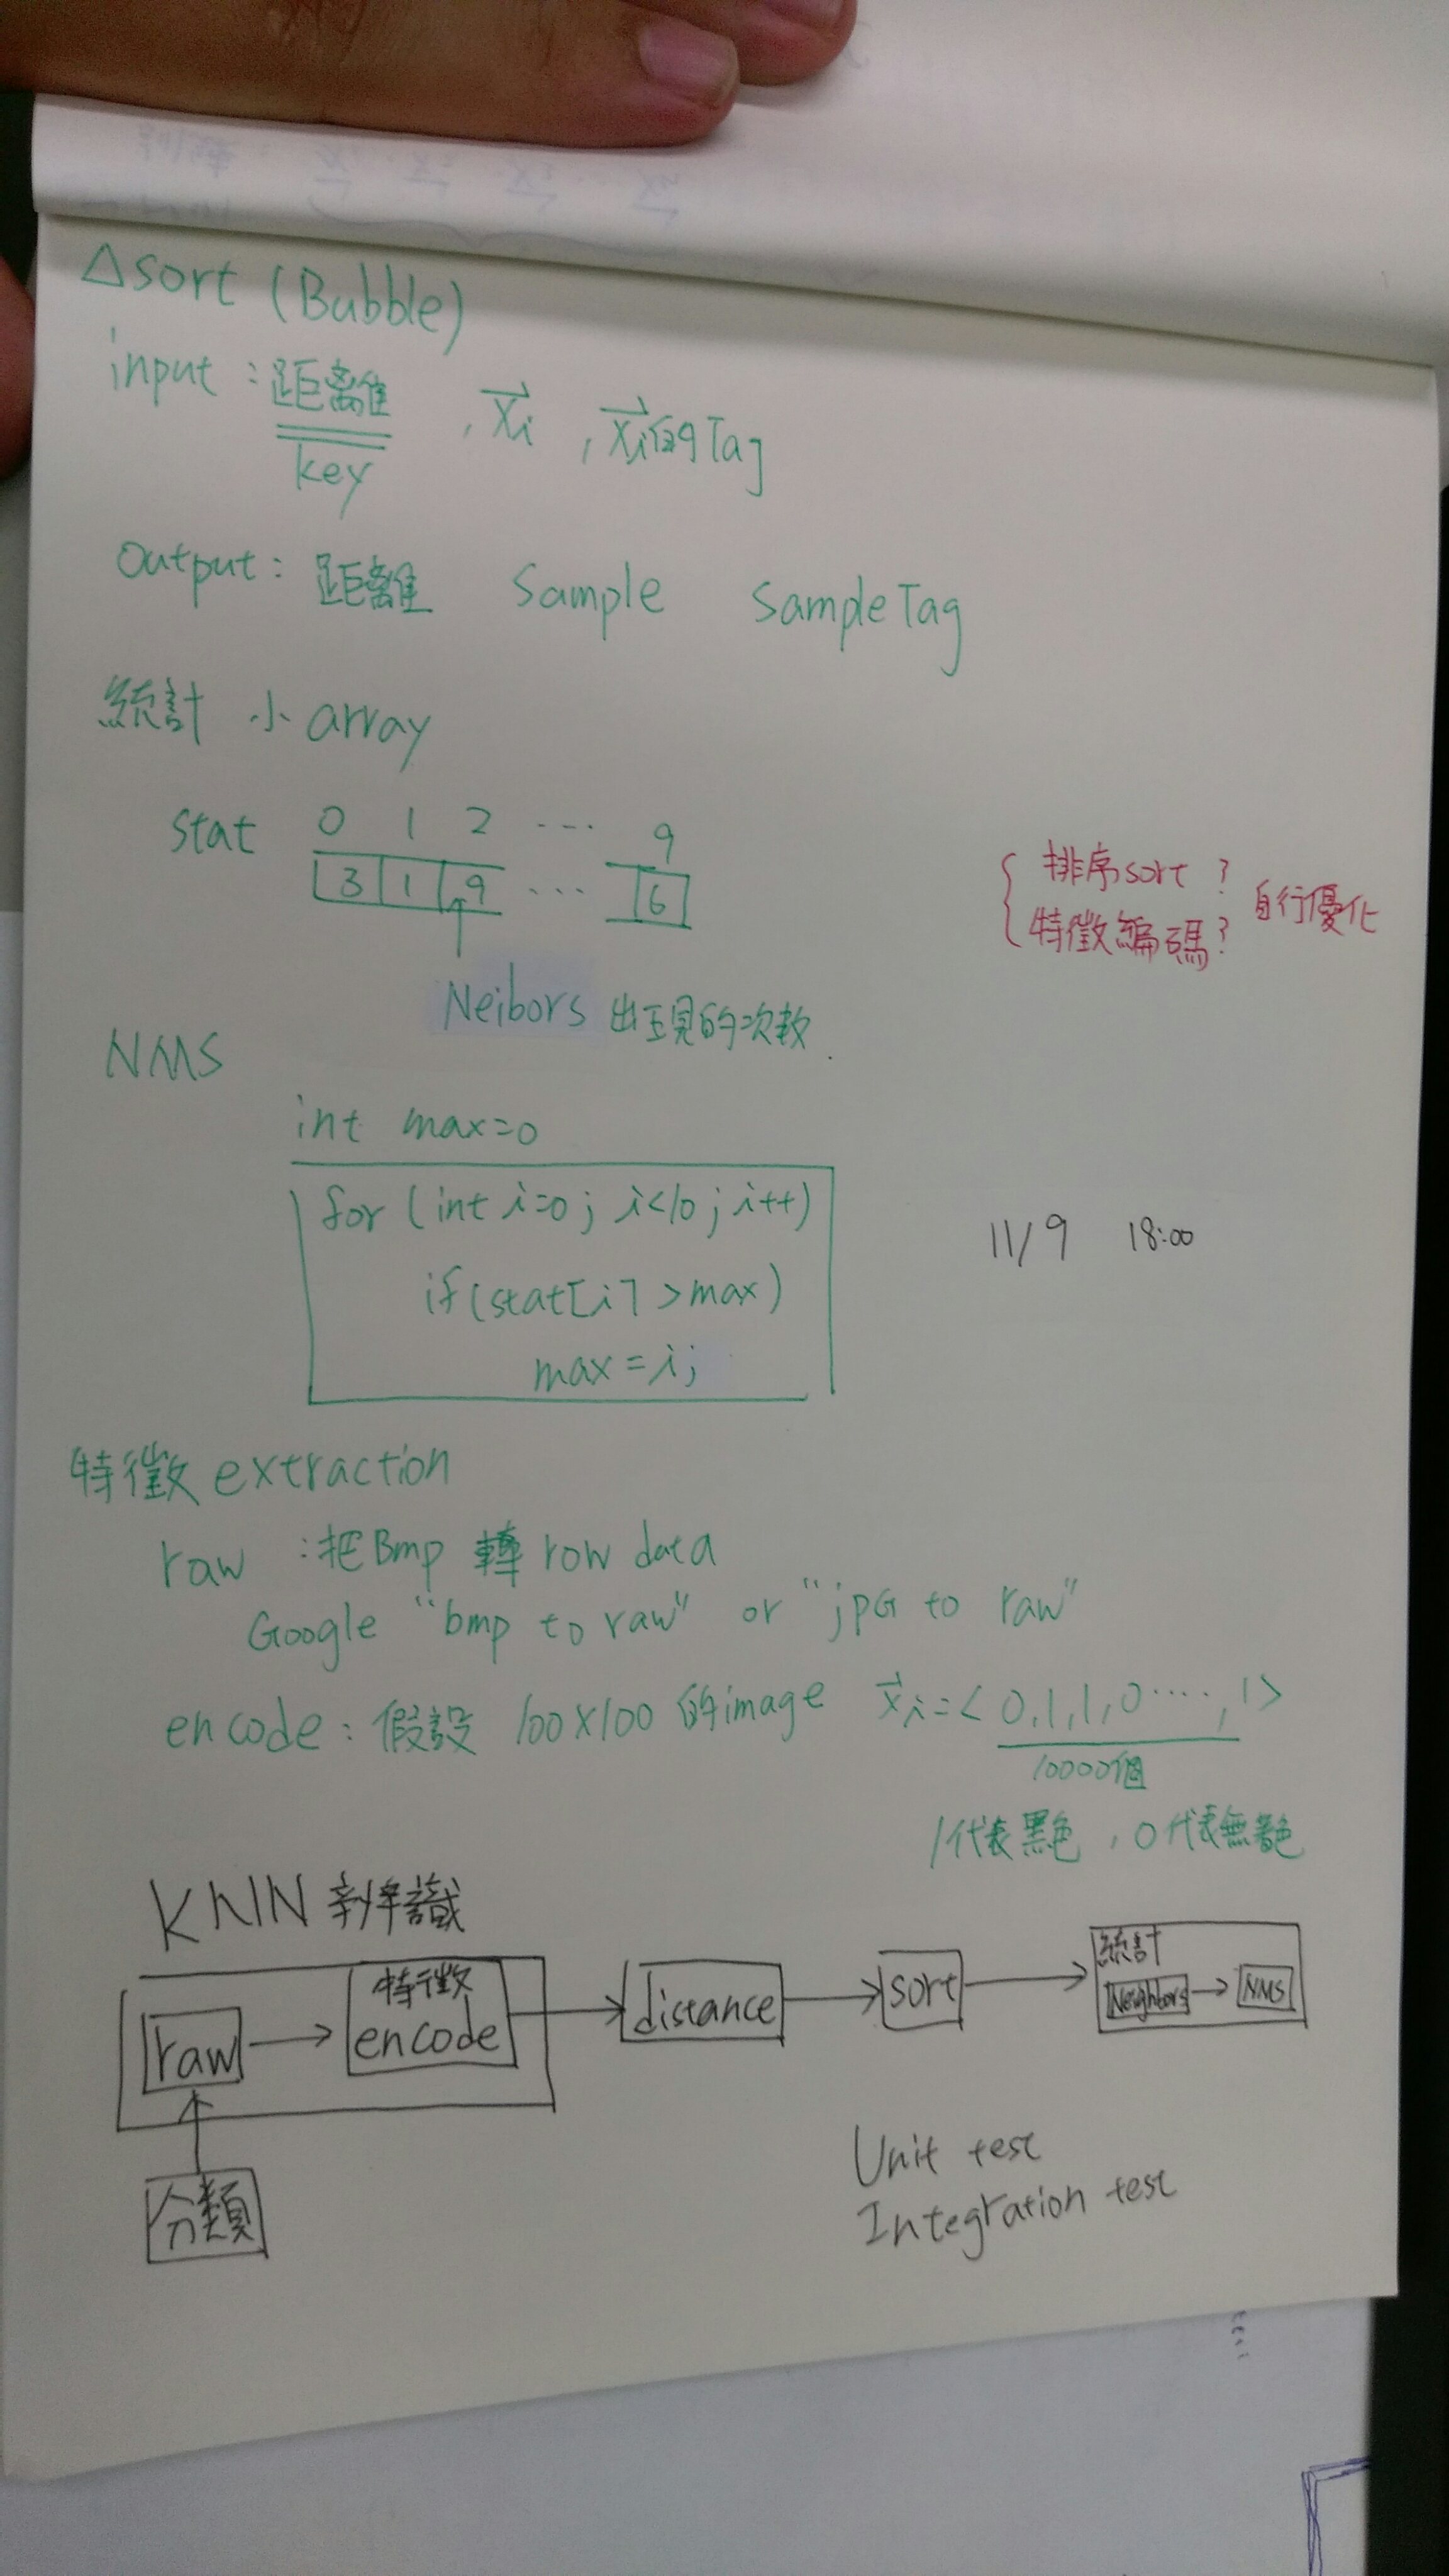 △sort (Bubble)
input : 距離 , x⃗i , x⃗i的Tag
key
output : 距離 Sample SampleTag
統計 小 array
stat 0 1 2 ... 9
3 1 9 ... 6
Neibors 出現的次數
排序sort ?
特徵編碼 ?
自行優化
NMS
int max=0
for (int i=0 ; i<10 ; i++)
if(stat[i] >max)
max=i;
11/9 18:00
特徵 extraction
raw :把Bmp 轉 row data
Google "bmp to raw" or "jpG to raw"
encode : 假設 100X100 的image x⃗i=< 0,1,1,0.....,1>
10000個
1代表黑色 , 0代表無顏色
KNN 辨識
raw → 特徵 encode → distance → sort → 統計 Neighbors → NMS
分類
Unit test
Integration test